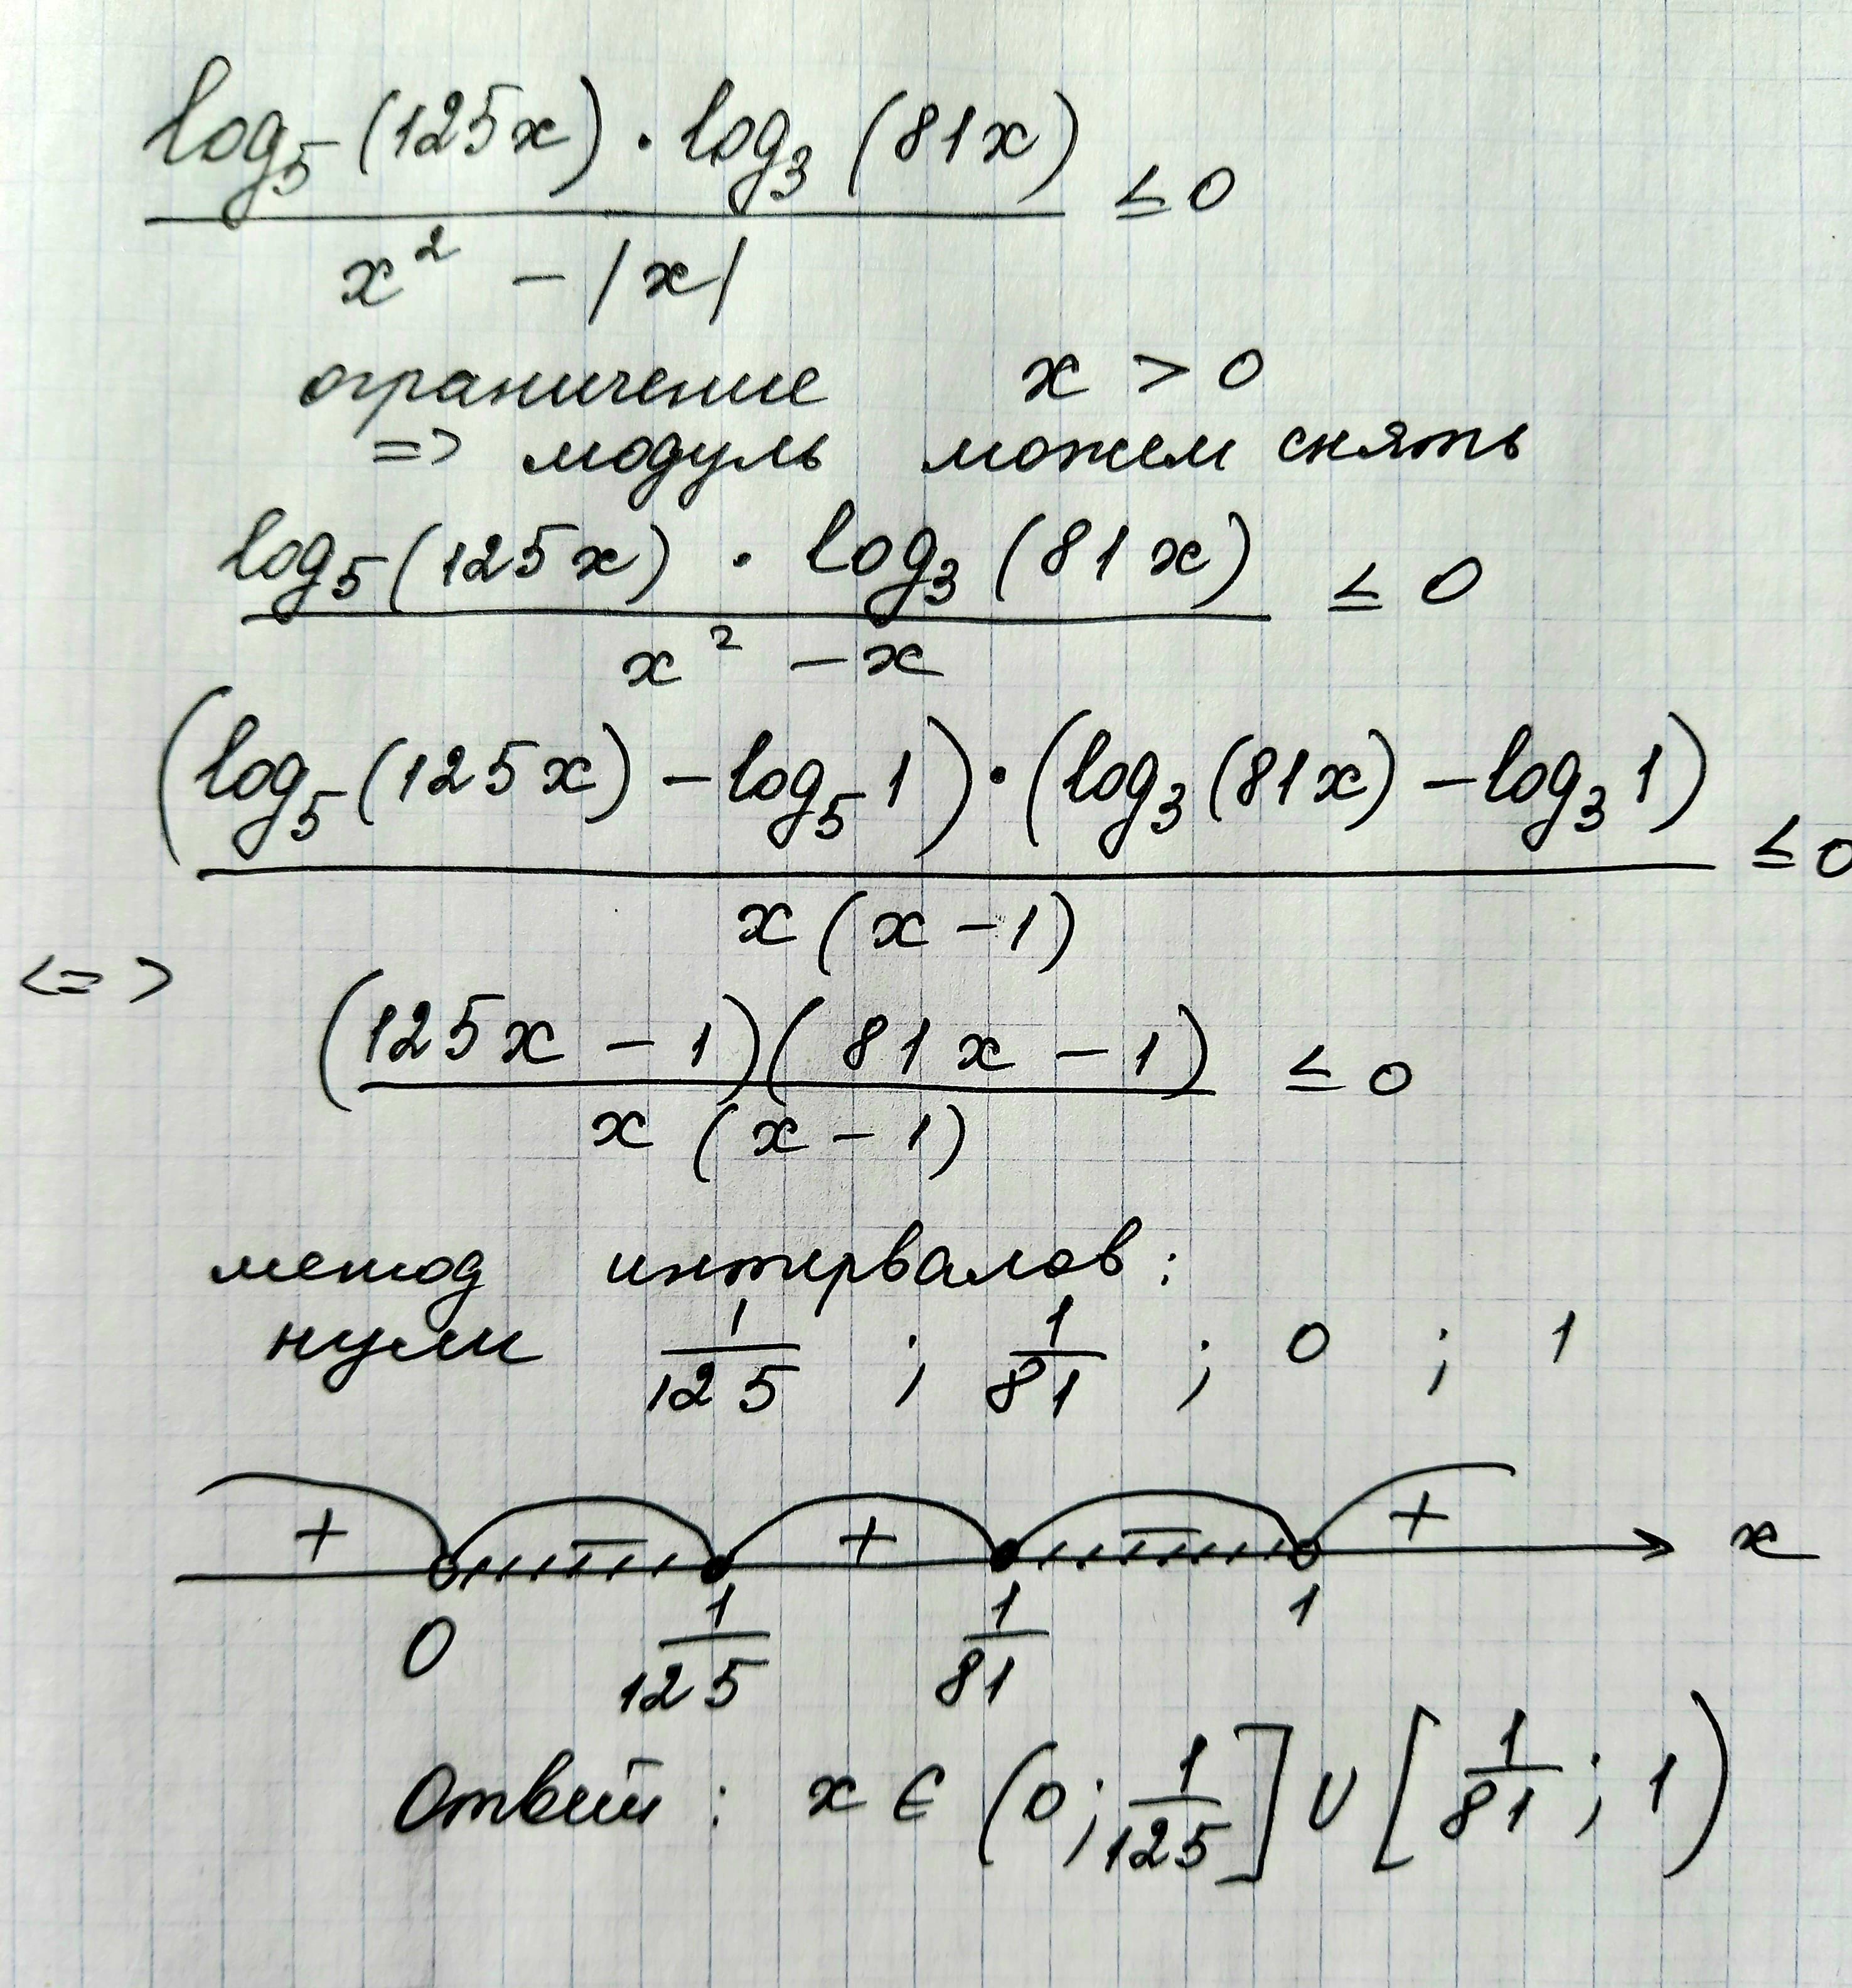 log₅(125x) · log₃(81x) / x² - |x| ≤ 0
ограничение x > 0
=> модуль можем снять
log₅(125x) · log₃(81x) / x² - x ≤ 0
(log₅(125x) - log₅1) · (log₃(81x) - log₃1) / x(x - 1) ≤ 0
<=> (125x - 1)(81x - 1) / x(x - 1) ≤ 0
метод интервалов:
нули 1/125 ; 1/81 ; 0 ; 1
+ - + - + x
0 1/125 1/81 1
Ответ: x ∈ (0; 1/125] ∪ [1/81; 1)